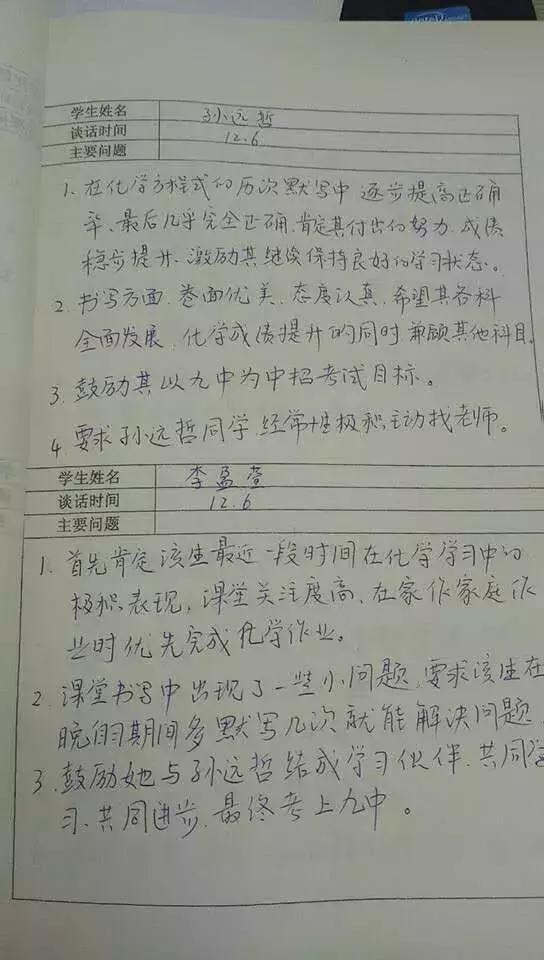 学生姓名 孙远哲
谈话时间 12.6
主要问题
1. 在化学方程式的历次默写中 逐步提高正确
率、最后几乎完全正确.肯定其付出的努力.成绩
稳步提升、激励其继续保持良好的学习状态。
2. 书写方面.卷面优美、态度认真.希望其各科
全面发展、化学成绩提升的同时兼顾其他科目.
3. 鼓励其以九中为中招考试目标。
4. 要求孙远哲同学.经常性积极主动找老师。
学生姓名 李孟萱
谈话时间 12.6
主要问题
1. 首先肯定该生最近一段时间在化学学习中的
极积表现，课堂关注度高、在家作家庭作
业时优先完成化学作业。
2. 课堂书写中出现了一些小问题.要求该生在
晚自习期间多默写几次就能解决问题.
3. 鼓励她与孙远哲结成学习伙伴.共同学
习、共同进步.最终考上九中。